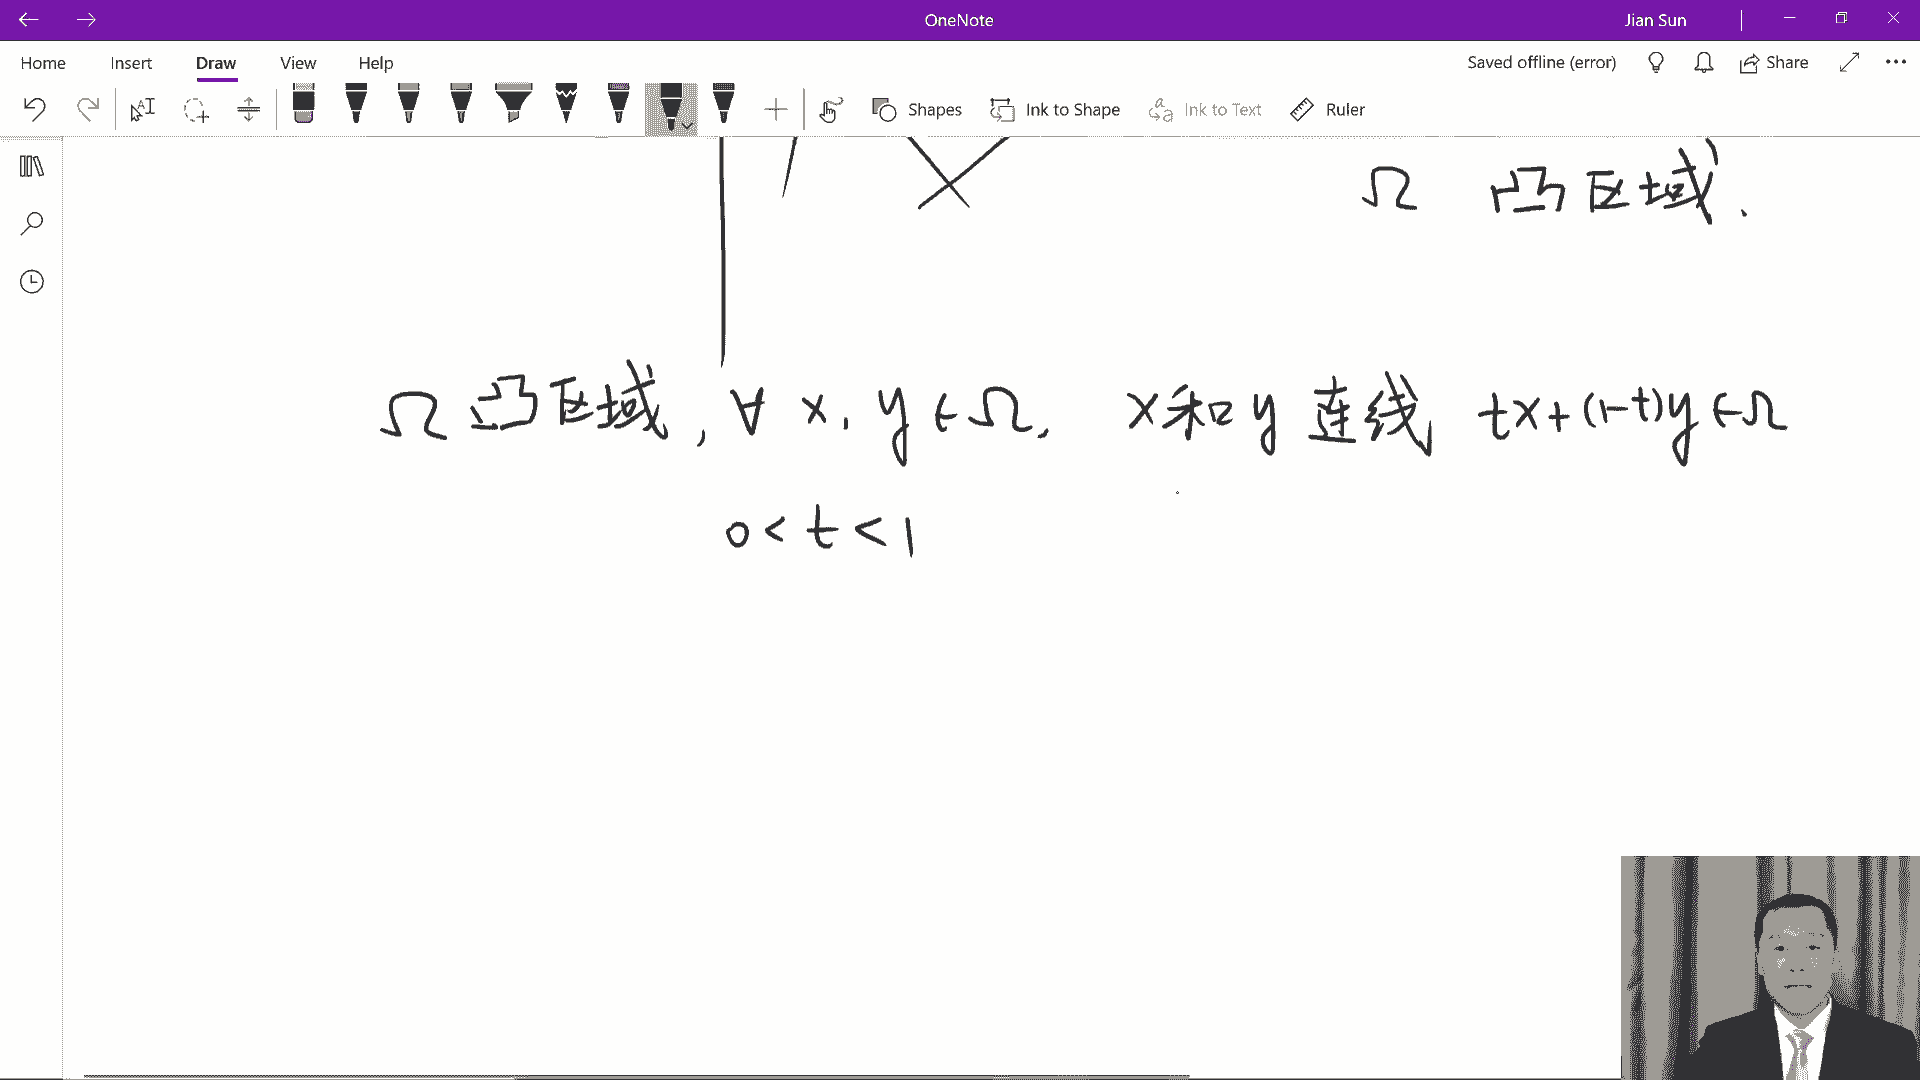 OneNote
Jian Sun
Home Insert Draw View Help
Saved offline (error) Share
Shapes Ink to Shape Ink to Text Ruler
Ω 凸区域.
Ω 凸区域, ∀ x, y ∈ Ω, x和y 连线 tx+(1-t)y ∈ Ω
0 < t < 1